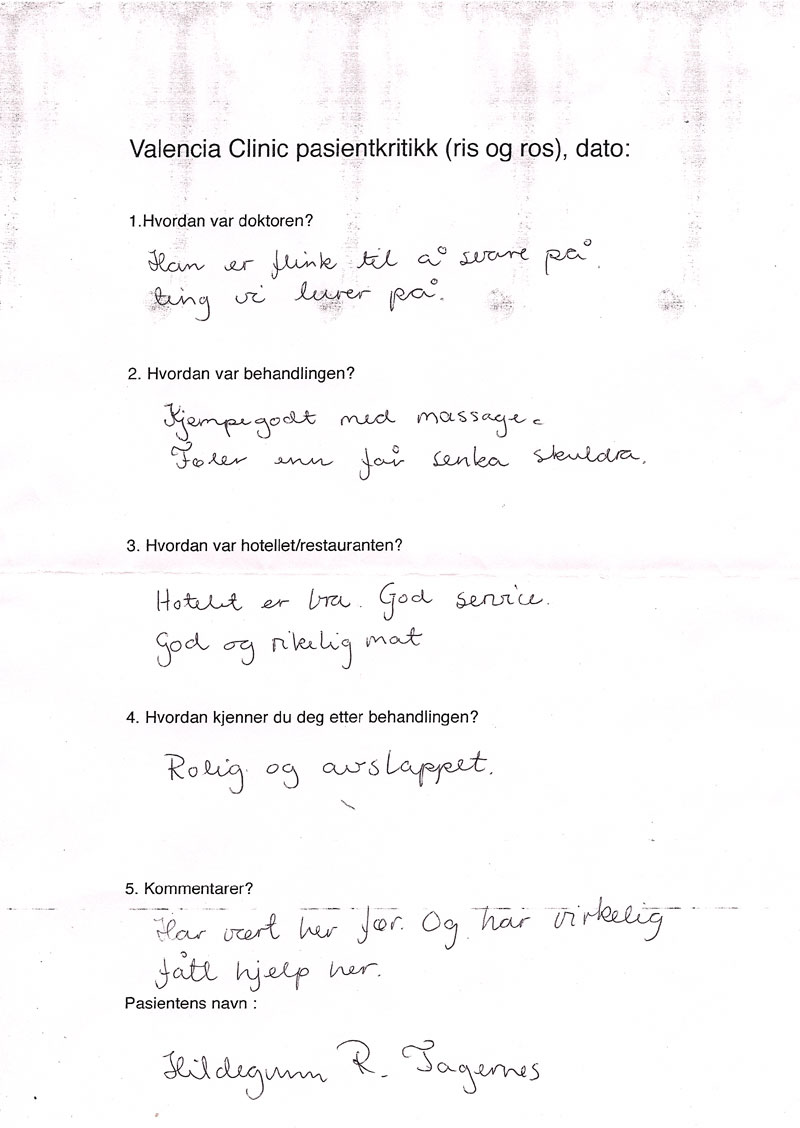 Valencia Clinic pasientkritikk (ris og ros), dato:
1.Hvordan var doktoren?
Han er flink til å svare på
ting vi lurer på.
2. Hvordan var behandlingen?
Kjempegodt med massage.
Føler enn får senka skuldra.
3. Hvordan var hotellet/restauranten?
Hotelet er bra. God service.
God og rikelig mat
4. Hvordan kjenner du deg etter behandlingen?
Rolig og avslappet.
5. Kommentarer?
Har vært her før. Og har virkelig
fått hjelp her.
Pasientens navn :
Hildegunn R. Tagernes